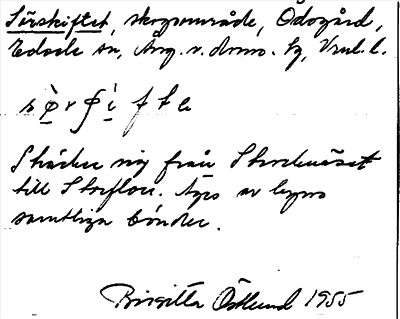 Sörskiftet, skogsområde, Ödsgård,
Edsele sn, Ång. v. doms. tg, Vnrl. l.
Sträcker sig från Storknäset
till Storflon. Ägs av byns
samtliga bönder.
Birgitta Östlund 1955